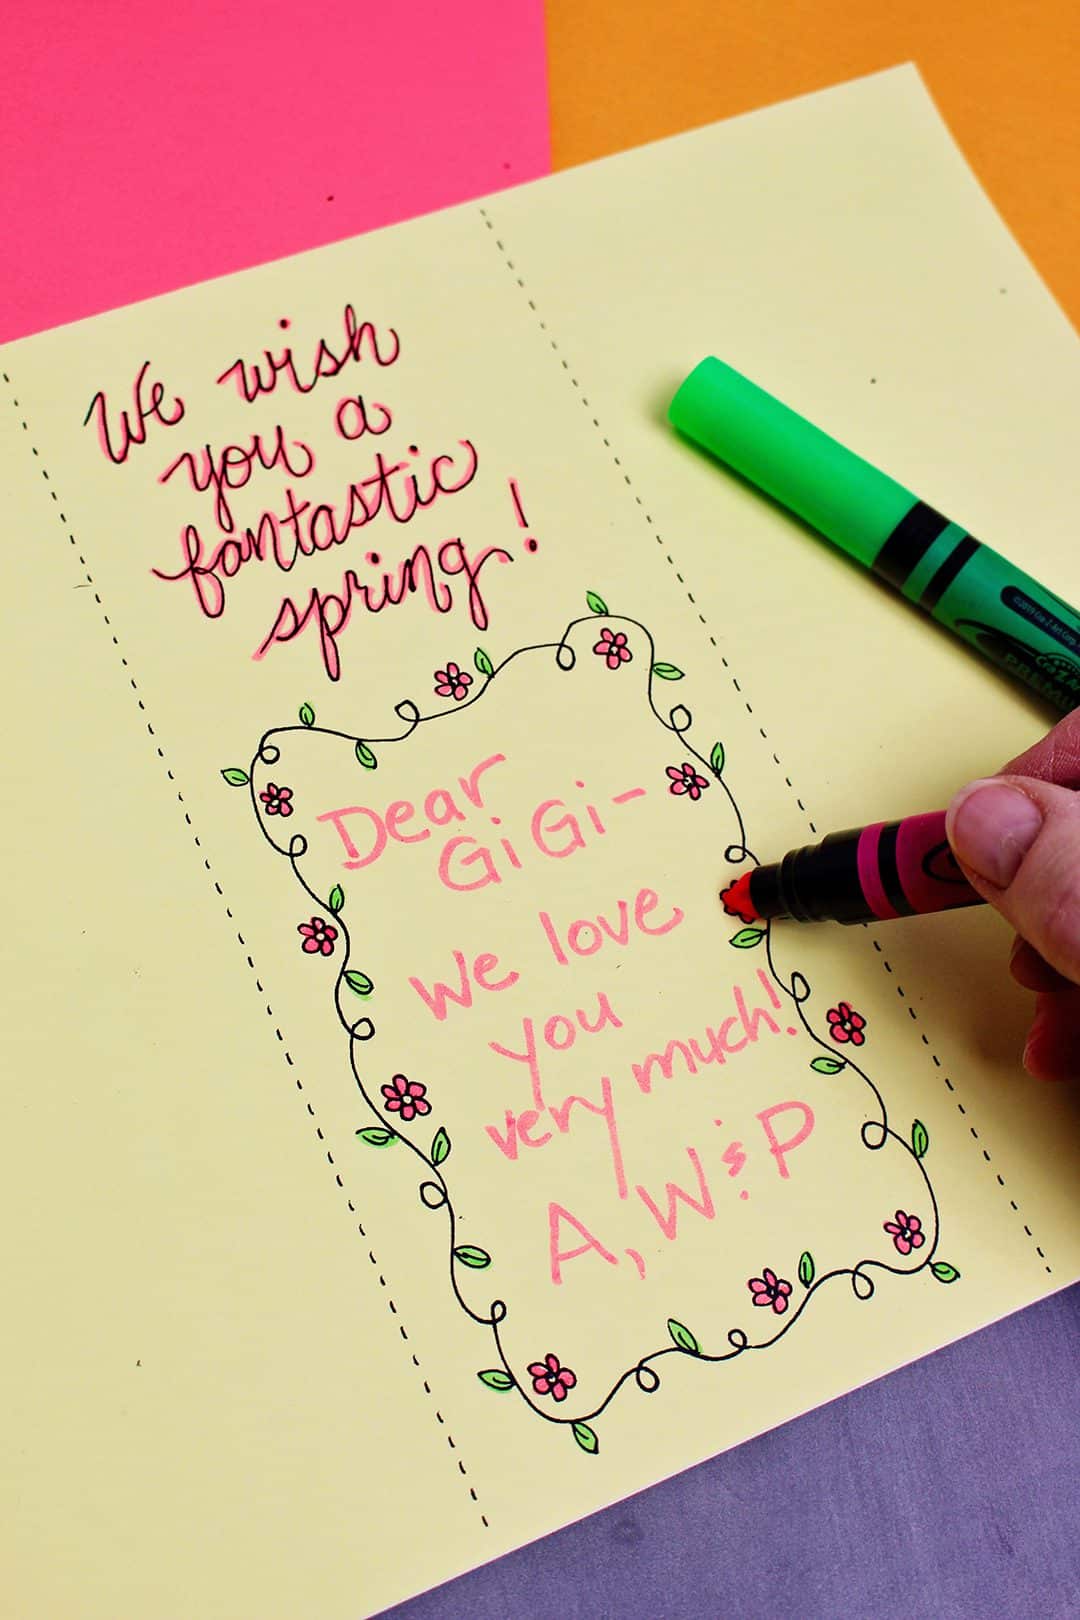 We wish
you a
fantastic
spring!
Dear
GiGi-
We love
you
very much!
A, W & P
©2019 Cra-Z-Art Corp.